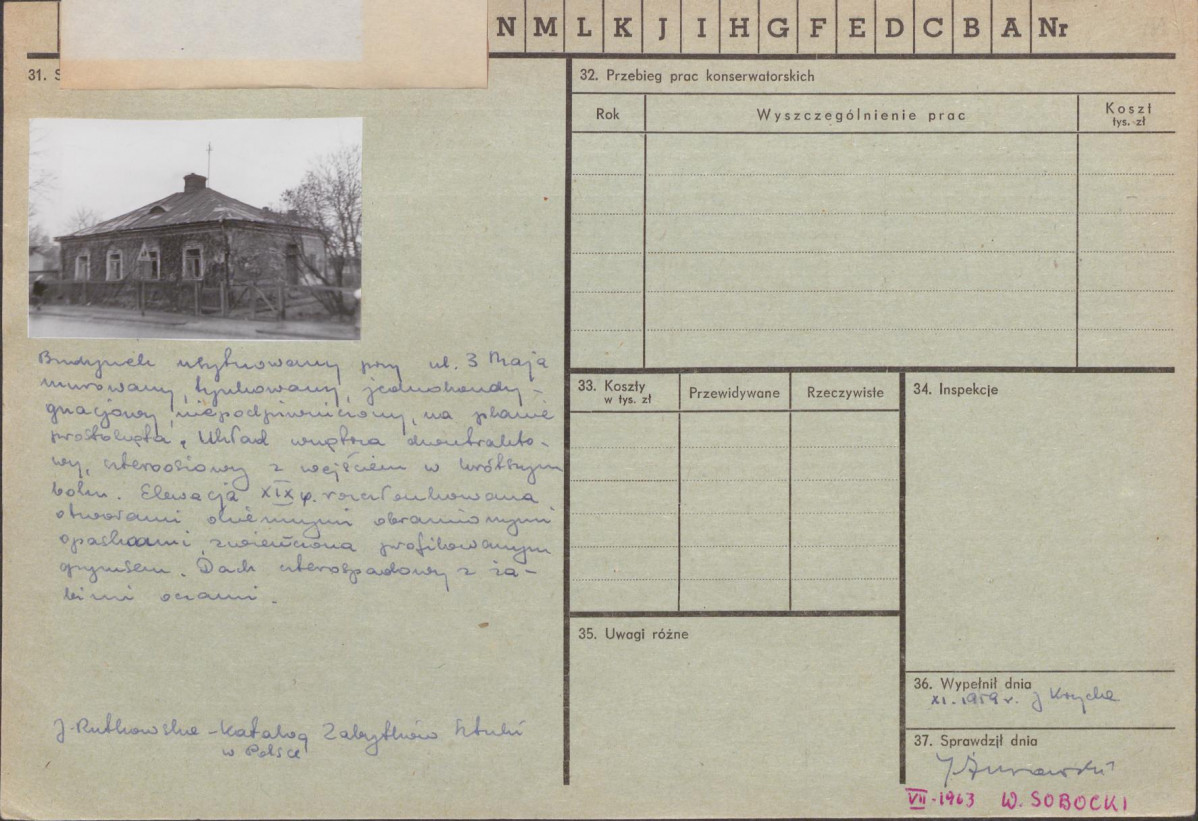 N M L K J I H G F E D C B A Nr
31. S
32. Przebieg prac konserwatorskich
Rok
Wyszczególnienie prac
Koszt
tys. zł
Budynek usytuowany przy ul. 3 Maja
murowany, tynkowany, jednokondy-
gnacjowy, niepodpiwniczony, na planie
prostokąta. Układ wnętrza dwutrakto-
wy, czteroosiowy z wejściem w krótszym
boku. Elewacja XIX w. rozczłonkowana
otworami okiennymi obramionymi
opaskami, zwieńczona profilowanym
gzymsem. Dach czterospadowy z ża-
bimi oczami.
J. Rutkowska - Katalog Zabytków Sztuki
w Polsce
33. Koszty
w tys. zł
Przewidywane
Rzeczywiste
34. Inspekcje
35. Uwagi różne
36. Wypełnił dnia
XI. 1959 r. J
37. Sprawdził dnia
VII-1963 W. SOBOCKI